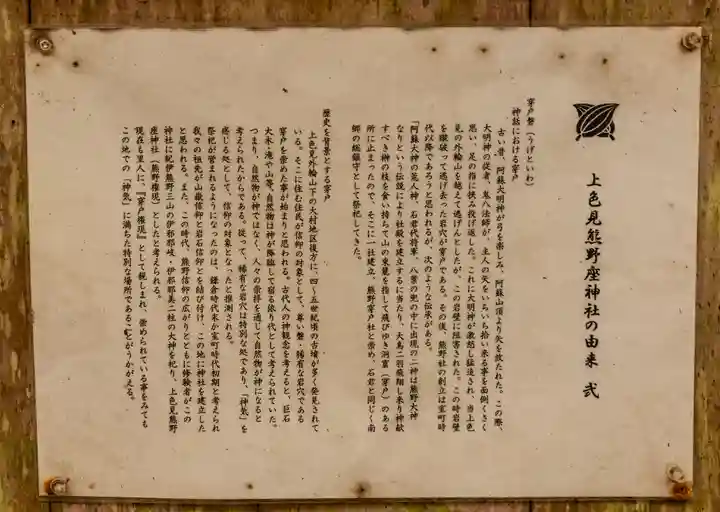 上色見熊野座神社の由来 弐
穿戸磐(うげといわ)
神話における穿戸
古い昔、阿蘇大明神が弓を楽しみ、阿蘇山頂より矢を放たれた。この際、
大明神の従者、鬼八法師が、主人の矢をいちいち拾い来る事を面倒くさく
思い、足の指に挟み投げ返した。これに大明神が激怒し猛追され、当上色
見の外輪山を越えて逃げんとしたが、この岩壁に阻害された。この時岩壁
を蹴破って逃げ去った岩穴が穿戸である。その後、熊野社の創立は室町時
代以降であろうと思われるが、次のような伝承がある。
「阿蘇大神の荒人神、石君代将軍、八叢の兜の中に出現の二神は熊野大神
なりという伝説により社殿を建立するに当たり、大烏二羽飛翔し来り神献
すべき榊の枝を食い持ちて山の東麓を指して飛びゆき洞窟(穿戸)のある
所に止まったので、そこに一社建立、熊野穿戸社と崇め、石君と同じく南
郷の総鎮守として祭祀してきた。
歴史を背景とする穿戸
上色見外輪山下の大村地区後方に、四~五世紀頃の古墳が多く発見されて
いる。そこに住む住民が信仰の対象として、尊い磐・稀有な岩穴である
穿戸を崇めた事が始まりと思われる。古代人の神観念を考えると、巨石
大木・滝や山等、自然物は神が降臨して宿る依り代として考えられていた。
つまり、自然物が神ではなく、人々の崇拝を通じて自然物が神になると
考えられたからである。従って、稀有な岩穴は特別な処であり、「神気」を
感じる処として、信仰の対象となったと推測される。
祭祀が営まれるようになったのは、鎌倉時代末か室町時代初期と考えられ
我々の祖先が山嶽信仰と岩石信仰とを結び付け、この地に神社を建立した
と思われる。また、この時代、熊野信仰の広がりとともに修験者がこの
神社に紀伊熊野三山の伊邪那岐・伊邪那美二柱の大神を祀り、上色見熊野
座神社(熊野権現)としたと考えられる。
現在も里人に、『穿戸権現』として親しまれ、崇められている事をみても
この地での「神気」に満ちた特別な場所であることがうかがえる。